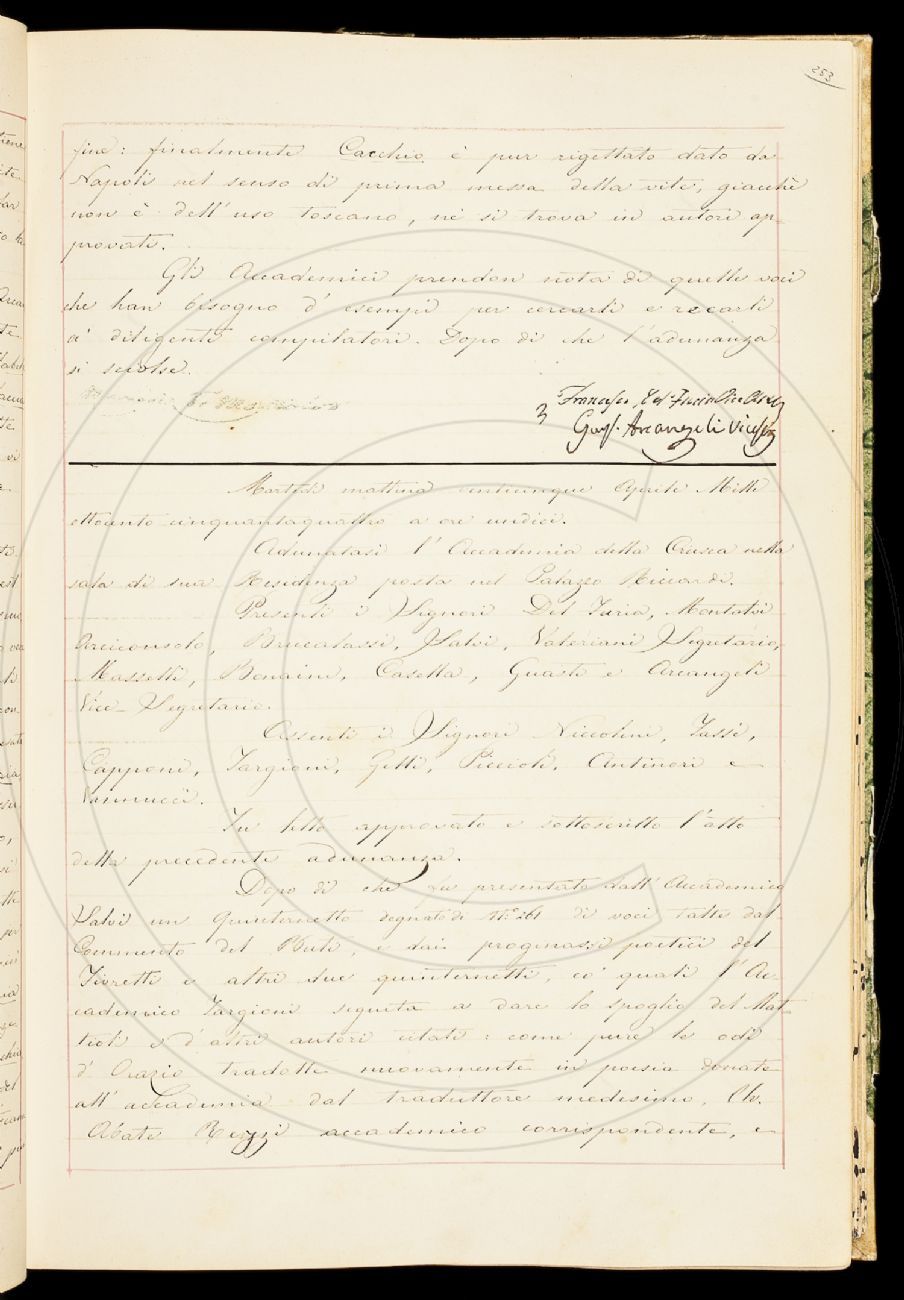 253
fine: finalmente Cacchio è pur rigettato dato da
Napoli nel senso di prima messa della vite, giacchè
non è dell'uso toscano, nè si trova in autori ap-
provati.
Gli Accademici prendon nota di quelle voci
che han bisogno d'esempi per cercarli e recarli
a' diligenti compilatori. Dopo di che l'adunanza
si sciolse.
Francesco Del Furia
Gius. Arcangeli Vice
Martedì mattina venticinque Aprile Mille
ottocento cinquantaquattro a ore undici.
Adunatasi l'Accademia della Crusca nella
sala di sua Residenza posta nel Palazzo Riccardi.
Presenti i Signori Del Furia, Montalvi
Arciconsolo, Brucalassi, Salvi, Valeriani Segretario,
Masselli, Bonaini, Casella, Guasti e Arcangeli
Vice-Segretario.
Assenti i Signori Niccolini, Tassi,
Capponi, Targioni, Gelli, Piccioli, Antinori e
Vannucci.
Fu letto approvato e sottoscritto l'atto
della precedente adunanza.
Dopo di che fu presentato dall'Accademico
Salvi un quinternetto segnato di N.º 261 di voci tratte dal
Commento del Buti, e dai proginnassi poetici del
Fioretti e altri due quinternetti, co' quali l'Ac-
cademico Targioni seguita a dare lo spoglio del Mat-
tioli e d'altri autori citati: come pure le odi
d'Orazio tradotte nuovamente in poesia donate
all'accademia dal traduttore medesimo, Ch.
Abate Rezzi accademico corrispondente, e